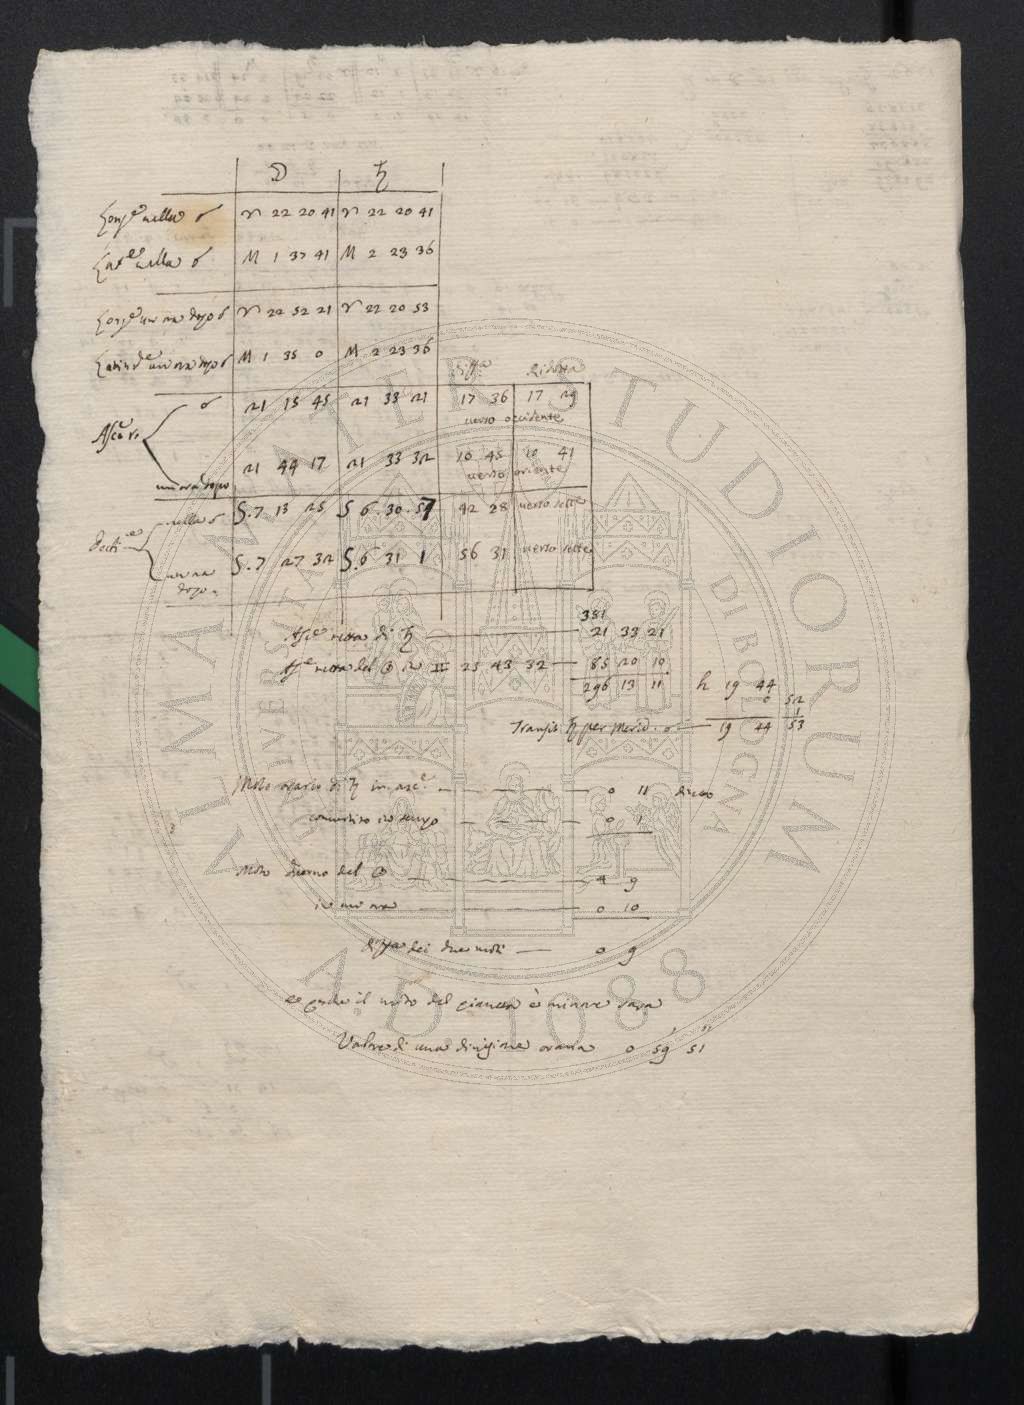 ☽ ♄
Long.e nella ☌ ♈ 22 20 41 ♈ 22 20 41
Lat.e nella ☌ M 1 37 41 M 2 23 36
Long.e un ora dopo ☌ ♈ 22 52 21 ♈ 22 20 53
Latitud.e un ora dopo ☌ M 1 35 0 M 2 23 36
Diff.a Ridotta
Asc.e r. ☌ 21 15 45 21 33 21 17 36 17 29
verso occidente
un ora dopo 21 44 17 21 33 32 10 45 10 41
verso oriente
Decli.e nella ☌ S. 7 13 25 S 6. 30. 57 42 28 verso sette
un ora dopo S. 7 27 32 S. 6 31 1 56 31 verso sette
381
Asc.e retta di ♄ 21 33 21
As.e retta del ☉ in ♊ 25 43 32 85 20 10
296 13 11 h 19 44
0 52
1
Transis. ♄ per Merid. 19 44 53
Moto orario di ♄ in asc.e 0 11 diretto
convertito in tempo 0 1
Moto diurno del ☉ 4 9
in un ora 0 10
diff.a dei due moti 0 9
e perche il moto del pianeta è minore sara
Valore di una divisione oraria 0 59' 51''
ALMA MATER STUDIORUM
A.D. 1088
UNIVERSITAS DI BOLOGNA